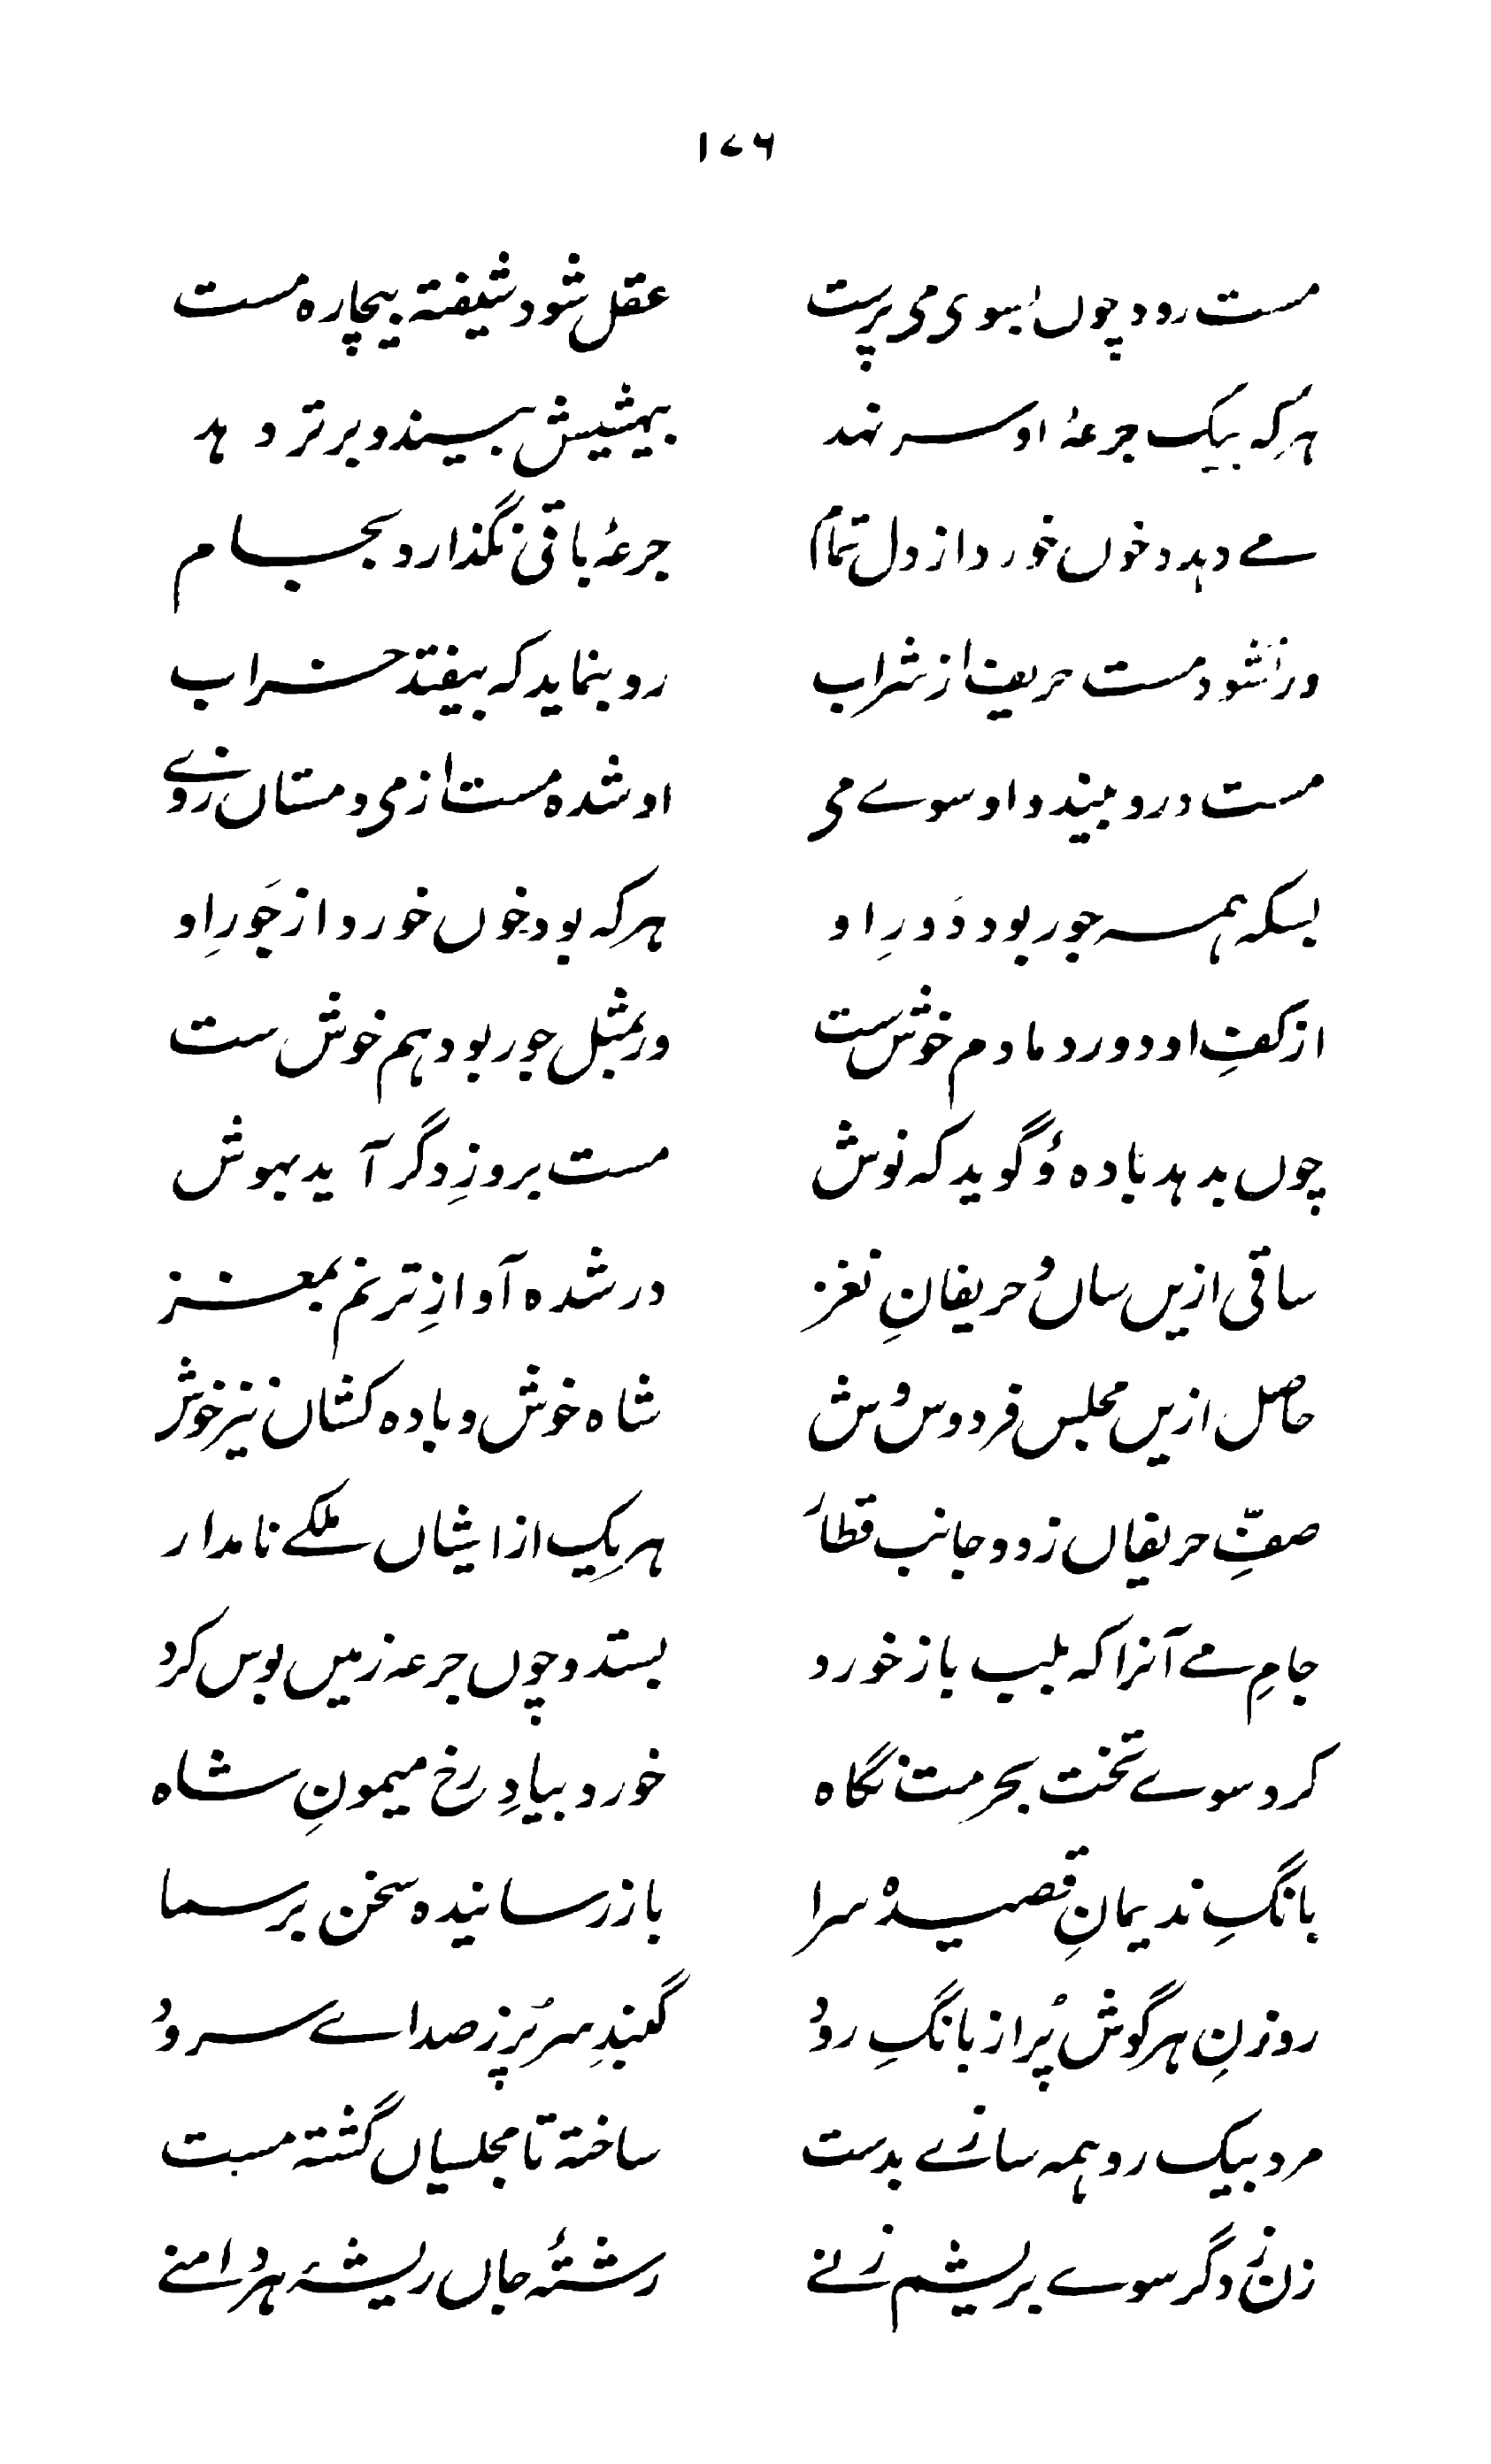 ۱۷۶
مست رود چوں بسوی می پرست عقل شود شیفتہ بیچارہ مست
ہر کہ بیک جرعۂ او سر نہد بیشیش بیند و برتر دہد
مے دہد و خوں خورد از دل تمام جرعۂ باقی نگذارد بجام
ور نشود مست حریف از شراب رو بنماید کہ بیفتد خراب
مست درو بیند و او سوے می او شدہ مست از می و مستاں ز وے
بسکہ ہمہ جور بود دَورِ او ہر کہ بود خوں خورد از جَورِ او
از کفِ او دور دمادم خوش ست ور بمثل جور بود ہم خوش ست
چوں بدہد بادہ وُ گوید کہ نوش مست بروزِ دگر آید بہوش
ساقی ازیں ساں وُ حریفانِ نغز در شدہ آوازِ ترنم بمغز
حاصل ازیں مجلس فردوس وش شاہ خوش و بادہ کشاں نیز خوش
صفِّ حریفاں ز دو جانب قطار ہر یک از ایشاں ملکے نامدار
جامِ مے آنرا کہ بلب باز خورد بستد و چوں جرعہ زمیں بوس کرد
کرد سوے تخت بحرمت نگاہ خورد بیادِ رخ میمونِ شاہ
بانگِ ندیمانِ قصیدہ سرا باز رسانیدہ سخن بر سما
روزنِ ہر گوش پُر از بانگِ رود گنبدِ سر پُر ز صداے سرود
مرد بیک رو ہمہ سازے بدست ساختہ تا مجلسیاں گشتہ مست
زن ز دگر سوے بریشم زنے رشتۂ جاں ریشۂ ہر دامنے